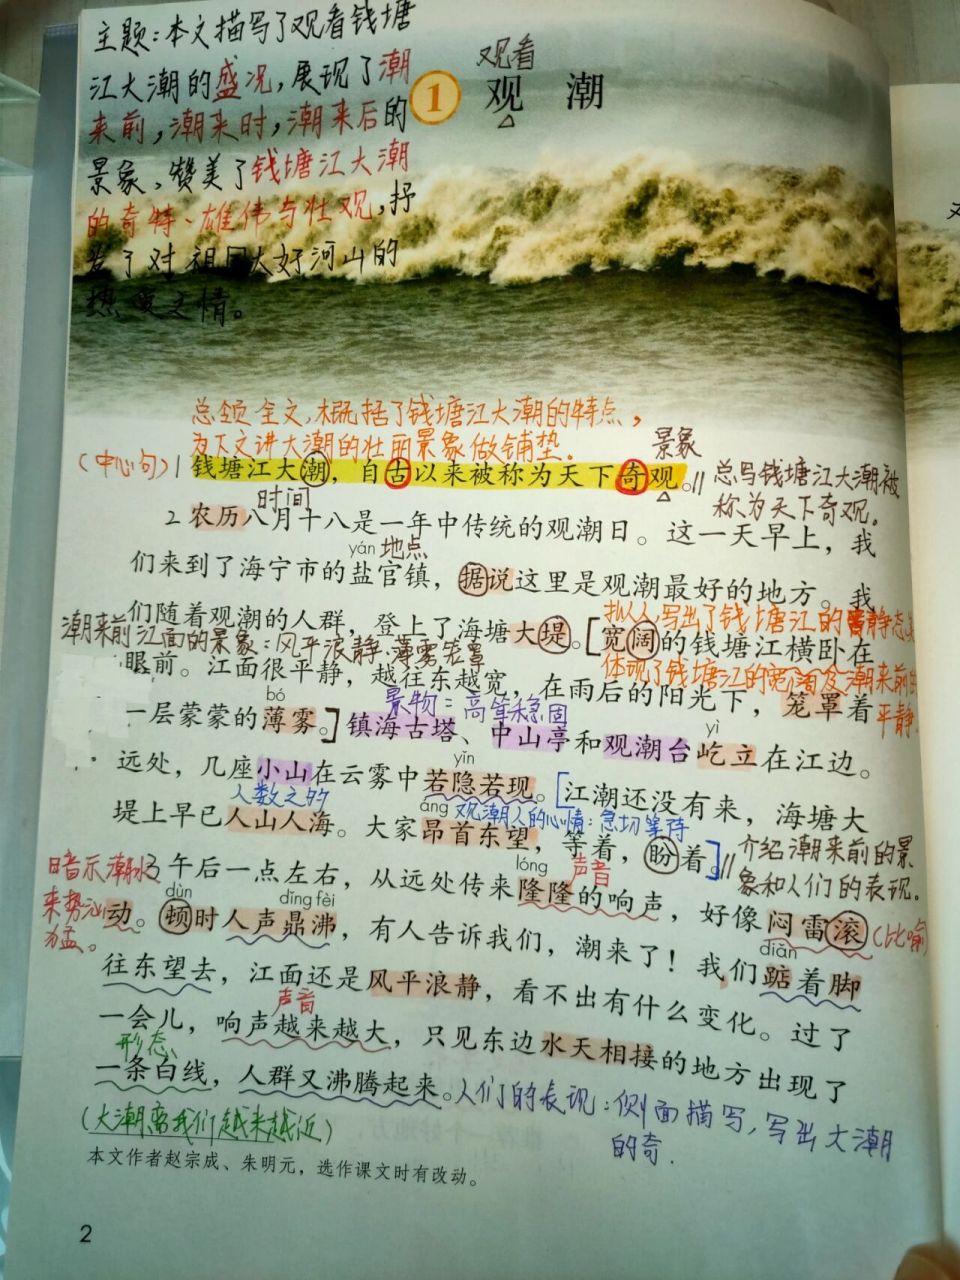 主题：本文描写了观看钱塘
江大潮的盛况，展现了潮
来前，潮来时，潮来后的
景象。赞美了钱塘江大潮
的奇特、雄伟与壮观，抒
发了对祖国大好河山的
热爱之情。
观看
1 观 潮
总领全文，概括了钱塘江大潮的特点，
为下文讲大潮的壮丽景象做铺垫。
景象
(中心句) 1 钱塘江大潮，自古以来被称为天下奇观。//
总写钱塘江大潮被
称为天下奇观。
时间
2 农历八月十八是一年中传统的观潮日。这一天早上，我
yán 地点
们来到了海宁市的盐官镇，据说这里是观潮最好的地方。我
们随着观潮的人群，登上了海塘大堤。[宽阔的钱塘江横卧在
拟人 写出了钱塘江的静态
潮来前江面的景象：风平浪静、薄雾笼罩
体现了钱塘江的宽阔及潮来前的
平静
眼前。江面很平静，越往东越宽，在雨后的阳光下，笼罩着
bó
景物：高耸稳固
yì
一层蒙蒙的薄雾。]镇海古塔、中山亭和观潮台屹立在江边。
yǐn
远处，几座小山在云雾中若隐若现。[江潮还没有来，海塘大
人数之多
áng 观潮人的心情：急切等待
堤上早已人山人海。大家昂首东望，等着，盼着。]//
介绍潮来前的景
象和人们的表现。
lóng 声音
3 午后一点左右，从远处传来隆隆的响声，好像闷雷滚
(比喻)
暗示潮水
来势汹
为猛。
dùn dǐng fèi
动。顿时人声鼎沸，有人告诉我们，潮来了！我们踮着脚
diǎn
往东望去，江面还是风平浪静，看不出有什么变化。过了
声音
一会儿，响声越来越大，只见东边水天相接的地方出现了
形态
一条白线，人群又沸腾起来。
人们的表现：侧面描写，写出大潮
的奇.
(大潮离我们越来越近)
本文作者赵宗成、朱明元，选作课文时有改动。
2